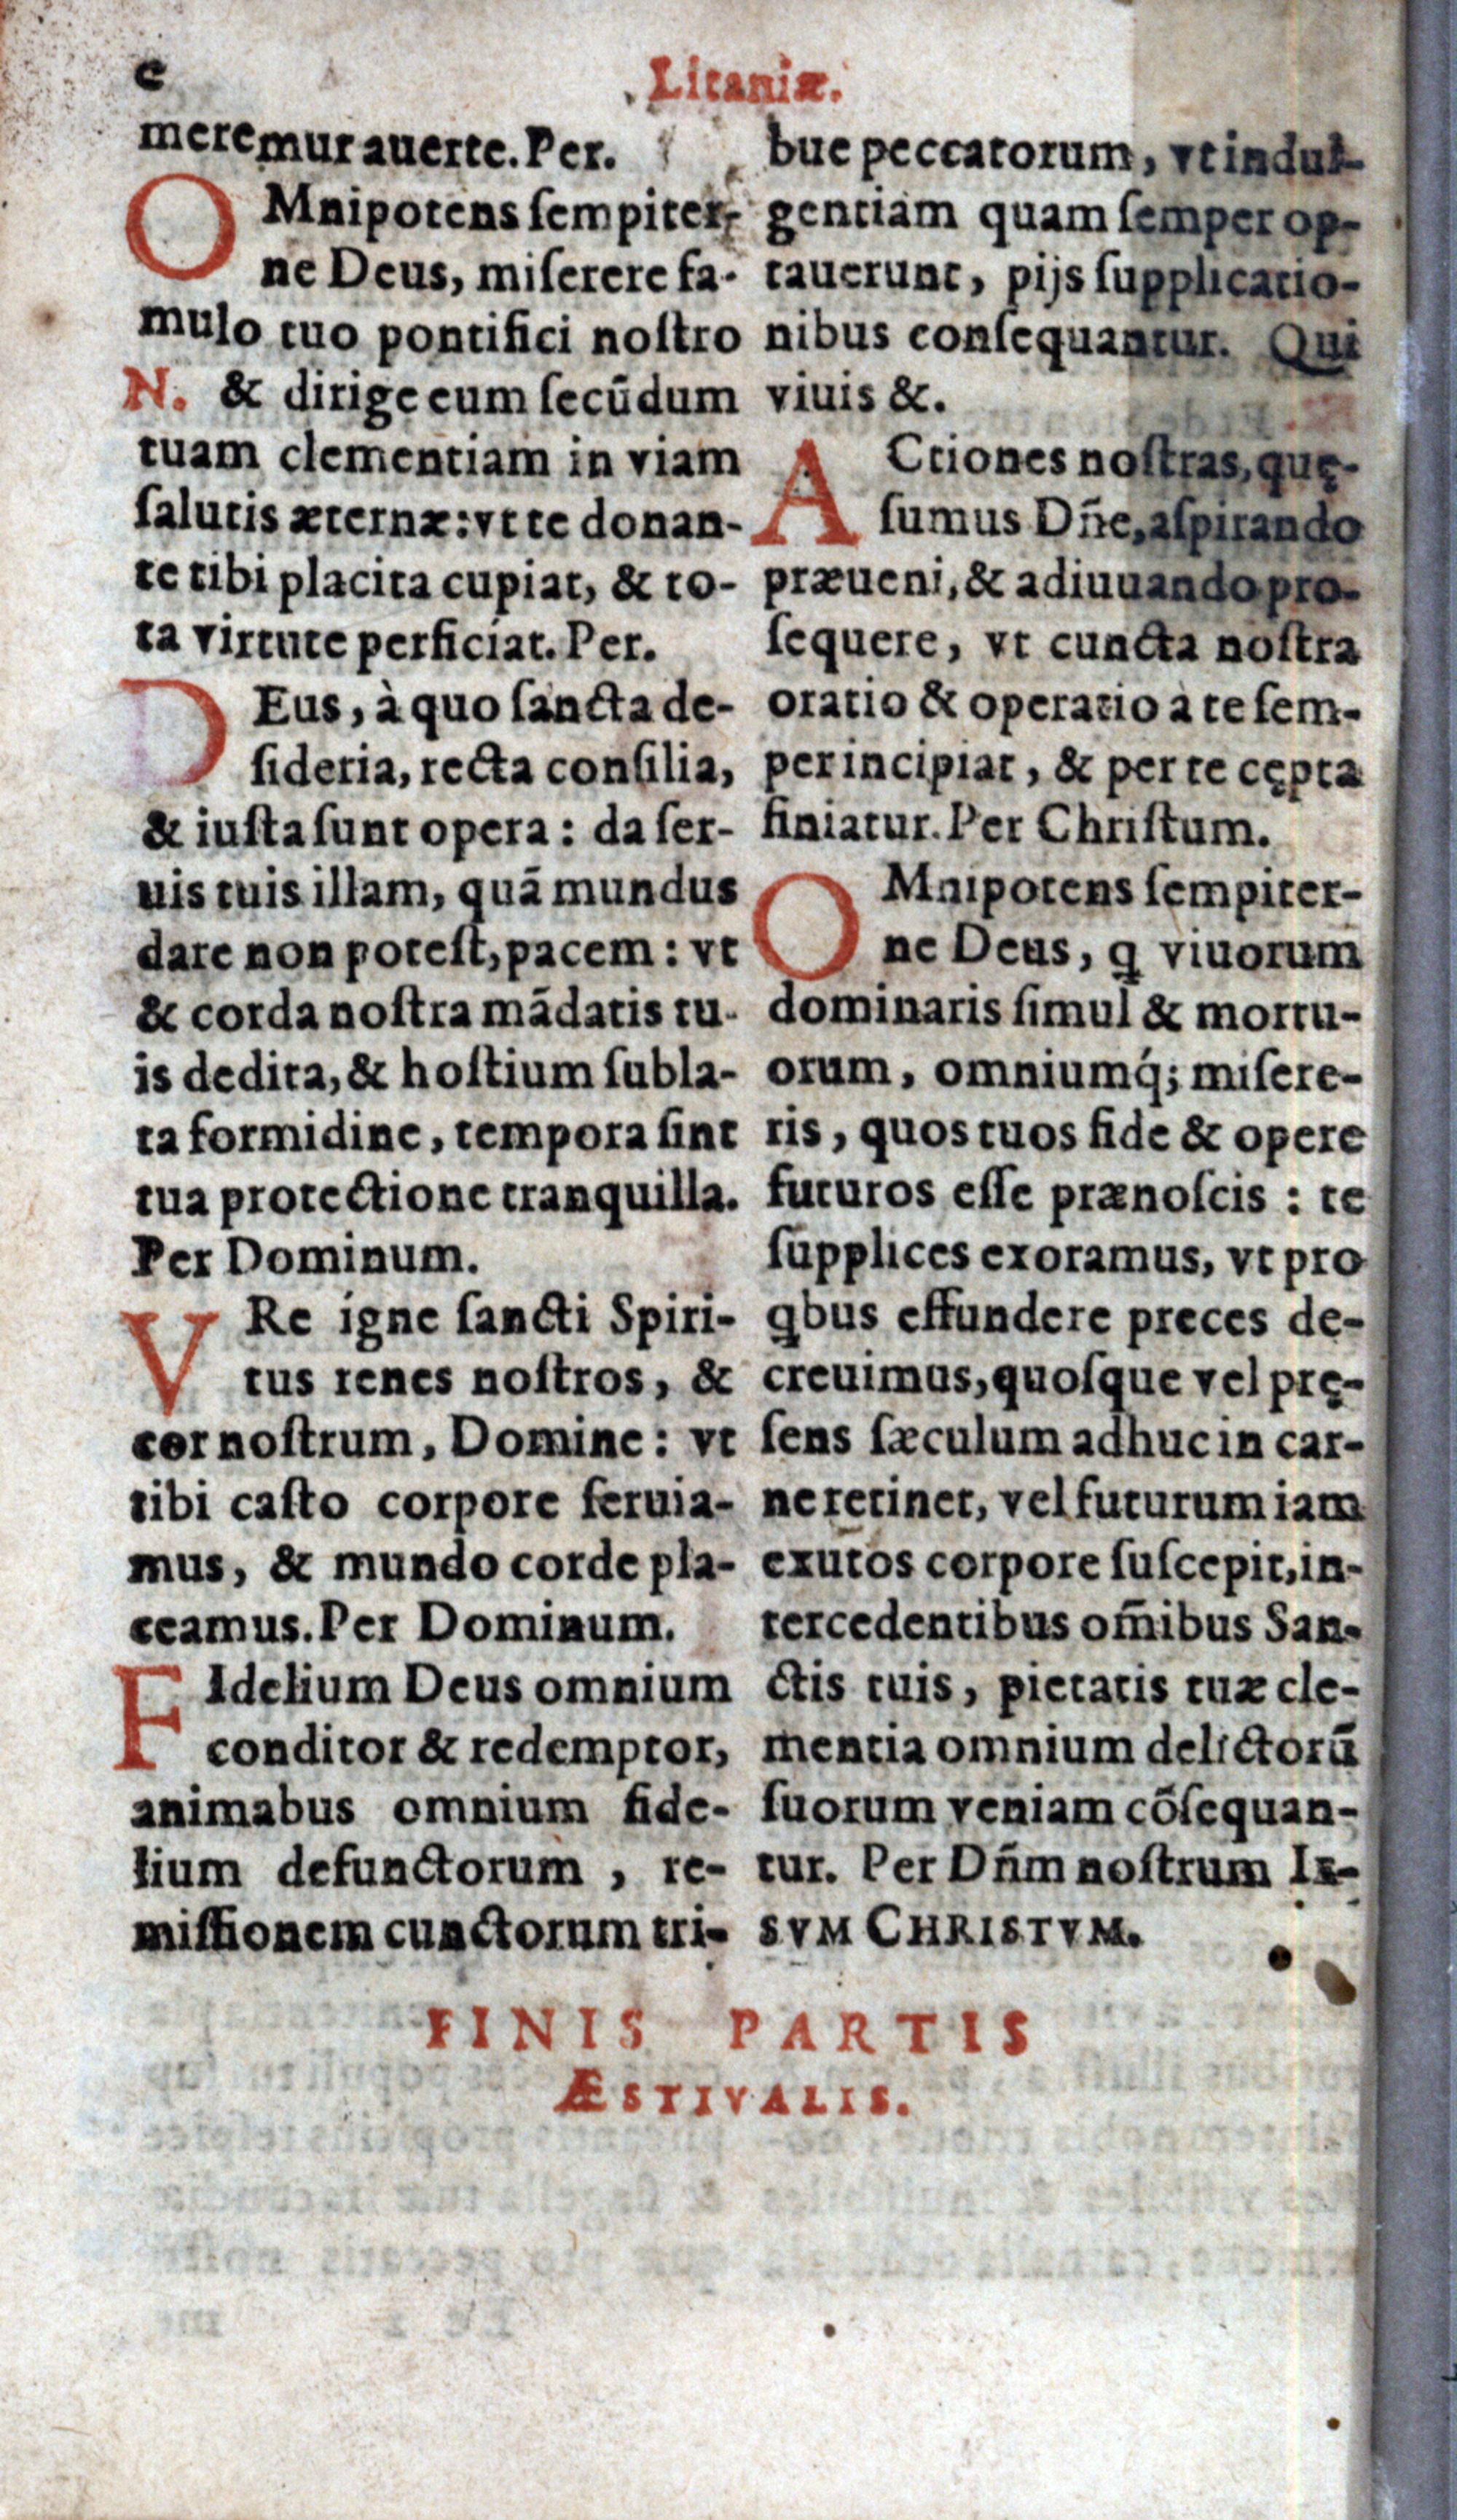 c
Litaniæ.
meremur auerte. Per.
OMnipotens ſempiter-
ne Deus, miſerere fa-
mulo tuo pontifici noſtro
N. & dirige eum ſecũdum
tuam clementiam in viam
ſalutis æternæ: vt te donan-
te tibi placita cupiat, & to-
ta virtute perficiat. Per.
DEus, à quo ſancta de-
ſideria, recta conſilia,
& iuſta ſunt opera: da ſer-
uis tuis illam, quã mundus
dare non poteſt, pacem: vt
& corda noſtra mãdatis tu-
is dedita, & hoſtium ſubla-
ta formidine, tempora ſint
tua protectione tranquilla.
Per Dominum.
VRe igne ſancti Spiri-
tus renes noſtros, &
cor noſtrum, Domine: vt
tibi caſto corpore ſeruia-
mus, & mundo corde pla-
ceamus. Per Dominum.
FIdelium Deus omnium
conditor & redemptor,
animabus omnium fide-
lium defunctorum, re-
miſſionem cunctorum tri-
bue peccatorum, vt indul-
gentiam quam ſemper op-
tauerunt, pijs ſupplicatio-
nibus conſequantur. Qui
viuis &.
ACtiones noſtras, quę-
ſumus Dñe, aſpirando
præueni, & adiuuando pro-
ſequere, vt cuncta noſtra
oratio & operatio à te ſem-
per incipiat, & per te cępta
finiatur. Per Chriſtum.
OMnipotens ſempiter-
ne Deus, ꝗ viuorum
dominaris ſimul & mortu-
orum, omniumq́; miſere-
ris, quos tuos fide & opere
futuros eſſe prænoſcis: te
ſupplices exoramus, vt pro
ꝗbus effundere preces de-
creuimus, quoſque vel prę-
ſens ſæculum adhuc in car-
ne retinet, vel futurum iam
exutos corpore ſuſcepit, in-
tercedentibus om̃ibus San-
ctis tuis, pietatis tuæ cle-
mentia omnium delictorũ
ſuorum veniam cõſequan-
tur. Per Dñm noſtrum IE-
SVM CHRISTVM.
FINIS PARTIS
ÆSTIVALIS.